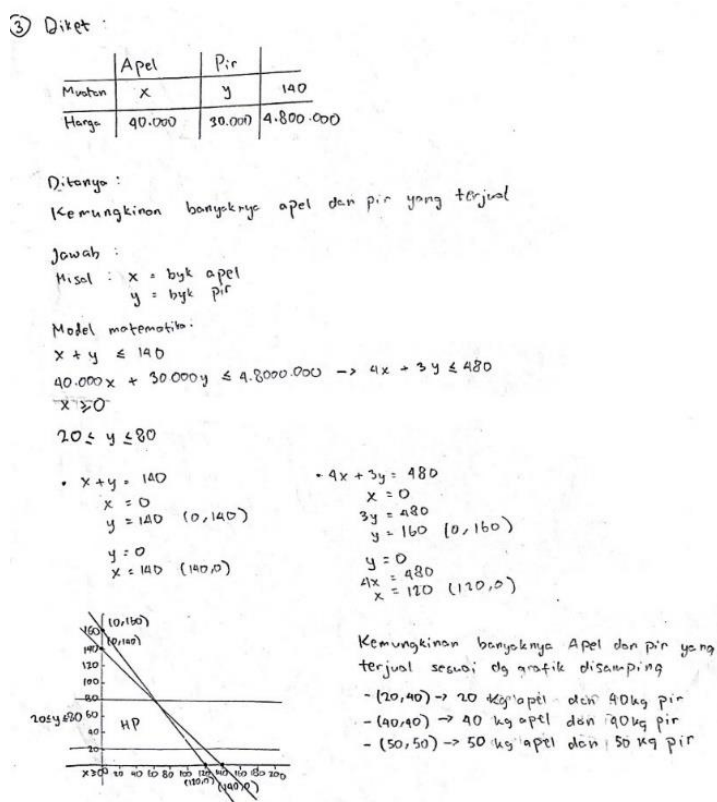 ③ Diket :
Apel Pir
Muatan x y 140
Harga 40.000 30.000 4.800.000
Ditanya :
Kemungkinan banyaknya apel dan pir yang terjual
Jawab :
Misal : x = byk apel
y = byk pir
Model matematika:
x + y ≤ 140
40.000x + 30.000y ≤ 4.8000.000 -> 4x + 3y ≤ 480
x ≥ 0
20 ≤ y ≤ 80
• x + y = 140
x = 0
y = 140 (0,140)
y = 0
x = 140 (140,0)
• 4x + 3y = 480
x = 0
3y = 480
y = 160 (0,160)
y = 0
4x = 480
x = 120 (120,0)
(0,160)
160
(0,140)
140
120
100
80
20≤y≤80 60
HP
40
20
x≥0 0 20 40 60 80 100 120 140 160 180 200
(120,0) (140,0)
Kemungkinan banyaknya Apel dan pir yang
terjual sesuai dg grafik disamping
- (20,40) -> 20 kg apel dan 40kg pir
- (40,40) -> 40 kg apel dan 40kg pir
- (50,50) -> 50 kg apel dan 50 kg pir